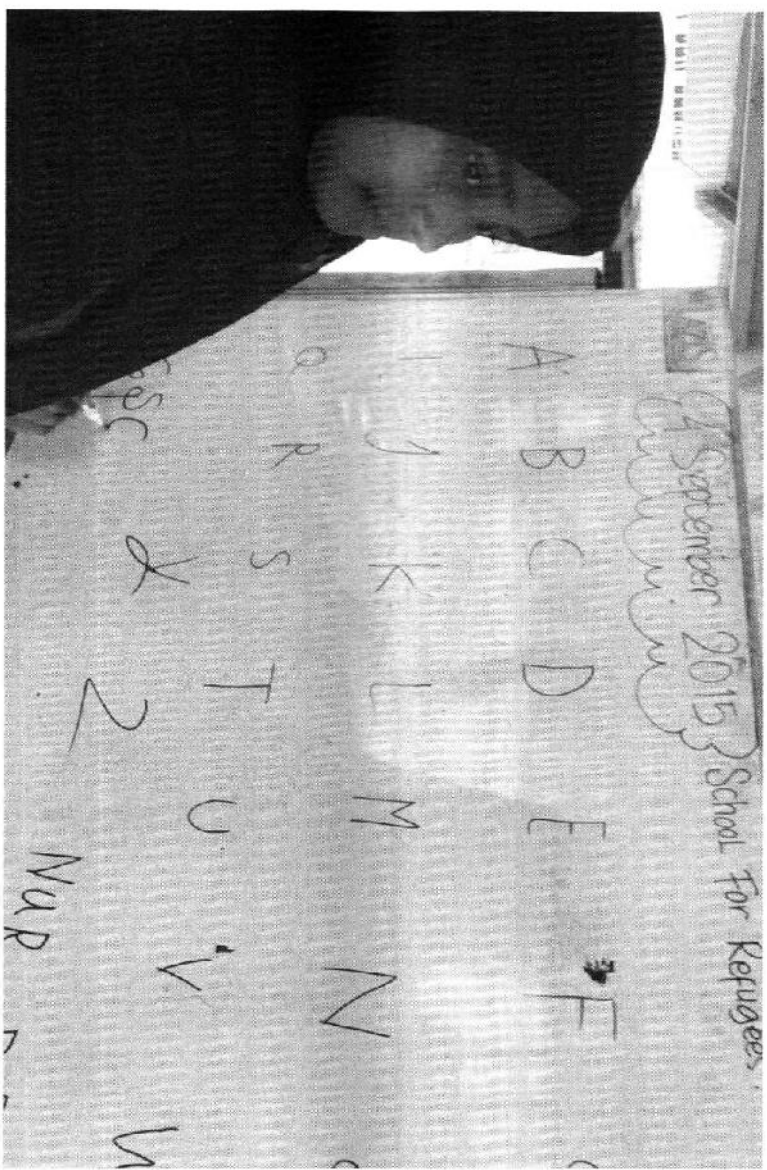 September 2015 School For Refugees.
A B C D E F
I J K L M N
Q R S T U V
Z